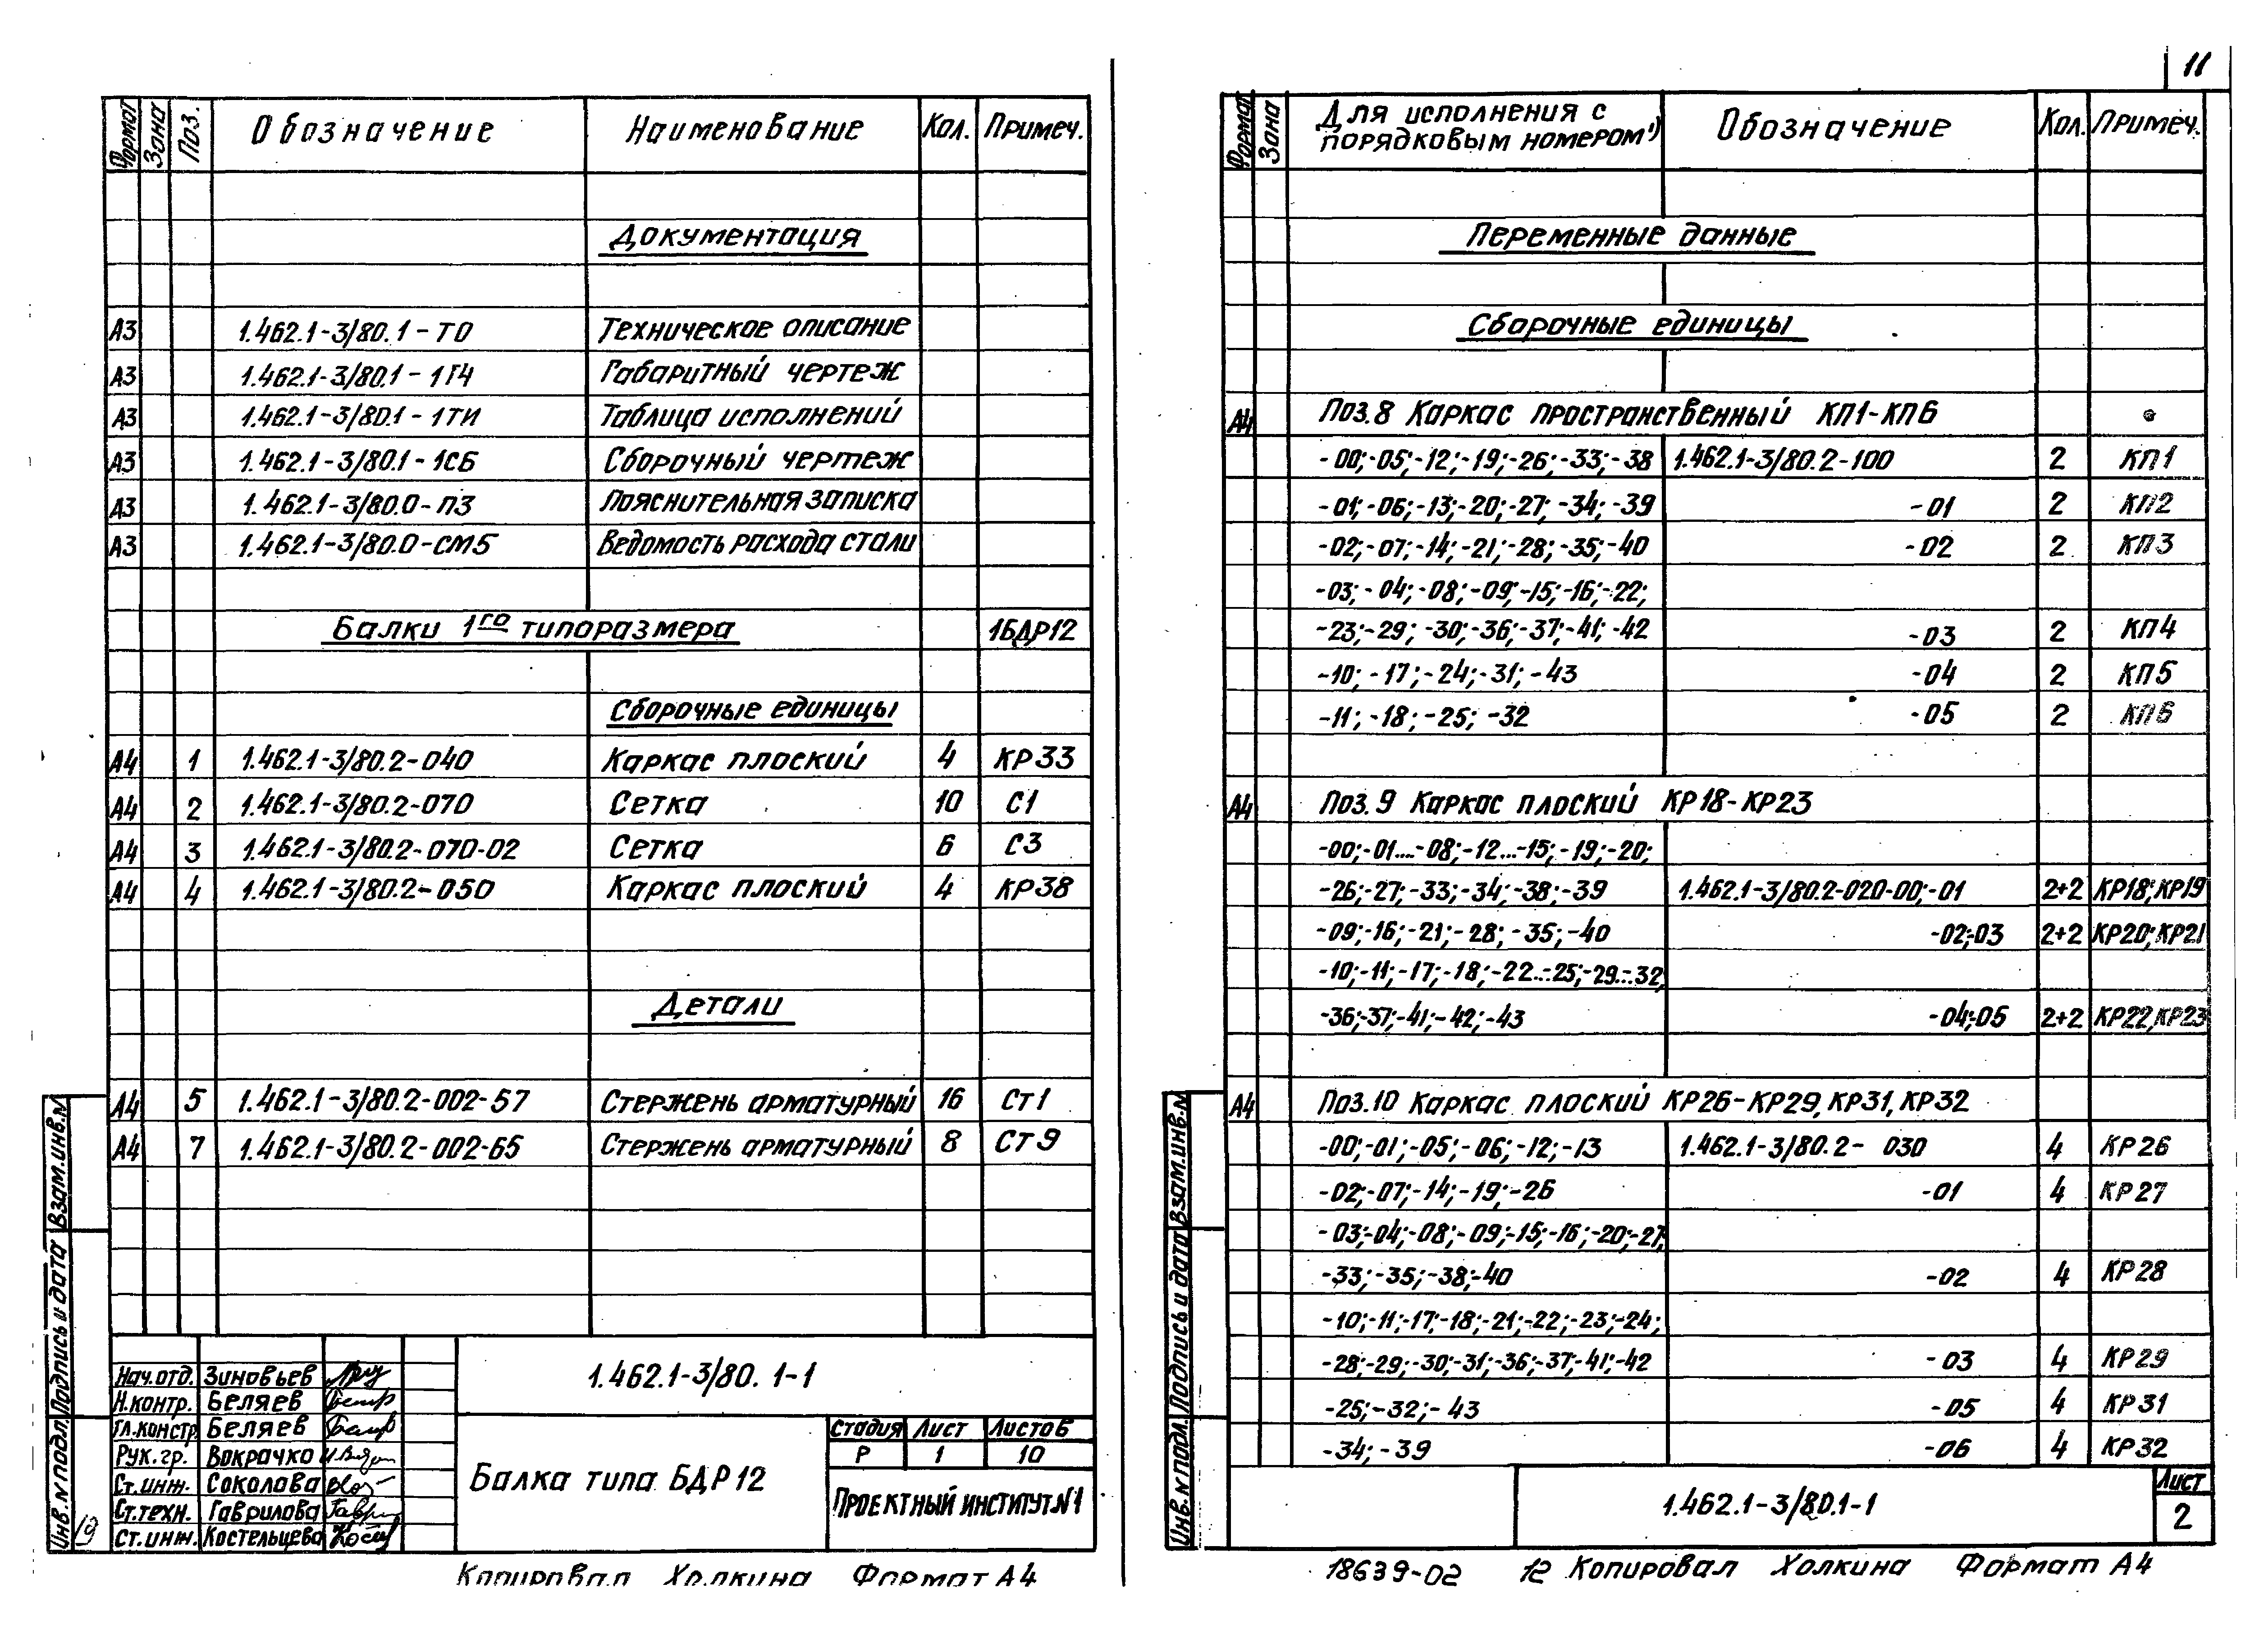 11
Формат Зона Поз. Обозначение Наименование Кол. Примеч.
Документация
А3 1.462.1-3/80.1-ТО Техническое описание
А3 1.462.1-3/80.1-1ГЧ Габаритный чертеж
А3 1.462.1-3/80.1-1ТИ Таблица исполнений
А3 1.462.1-3/80.1-1СБ Сборочный чертеж
А3 1.462.1-3/80.0-ПЗ Пояснительная записка
А3 1.462.1-3/80.0-СМБ Ведомость расхода стали
Балки 1го типоразмера 1БДР12
Сборочные единицы
А4 1 1.462.1-3/80.2-040 Каркас плоский 4 КР33
А4 2 1.462.1-3/80.2-070 Сетка 10 С1
А4 3 1.462.1-3/80.2-070-02 Сетка 6 С3
А4 4 1.462.1-3/80.2-050 Каркас плоский 4 КР38
Детали
А4 5 1.462.1-3/80.2-002-57 Стержень арматурный 16 Ст1
А4 7 1.462.1-3/80.2-002-65 Стержень арматурный 8 Ст9
Инв.N подл. Подпись и дата Взам.инв.N
19
Нач.отд. Зиновьев
Н.контр. Беляев
Гл.констр. Беляев
Рук.гр. Вокрачко
Ст.инж. Соколова
Ст.техн. Гаврилова
Ст.инж. Костельцева
1.462.1-3/80. 1-1
Балка типа БДР12
Стадия Лист Листов
Р 1 10
Проектный институт N1
Копировал Холкина Формат А4
Формат Зона Для исполнения с порядковым номером1) Обозначение Кол. Примеч.
Переменные данные
Сборочные единицы
А4 Поз.8 Каркас пространственный КП1-КП6
-00;-05;-12;-19;-26;-33;-38 1.462.1-3/80.2-100 2 КП1
-01;-06;-13;-20;-27;-34;-39 -01 2 КП2
-02;-07;-14;-21;-28;-35;-40 -02 2 КП3
-03;-04;-08;-09;-15;-16;-22;
-23;-29;-30;-36;-37;-41;-42 -03 2 КП4
-10;-17;-24;-31;-43 -04 2 КП5
-11;-18;-25;-32 -05 2 КП6
А4 Поз.9 Каркас плоский КР18-КР23
-00;-01...-08;-12...-15;-19;-20;
-26;-27;-33;-34;-38;-39 1.462.1-3/80.2-020-00;-01 2+2 КР18;КР19
-09;-16;-21;-28;-35;-40 -02;-03 2+2 КР20;КР21
-10;-11;-17;-18;-22...-25;-29...-32;
-36;-37;-41;-42;-43 -04;-05 2+2 КР22,КР23
А4 Поз.10 Каркас плоский КР26-КР29, КР31, КР32
-00;-01;-05;-06;-12;-13 1.462.1-3/80.2- 030 4 КР26
-02;-07;-14;-19;-26 -01 4 КР27
-03;-04;-08;-09;-15;-16;-20;-27;
-33;-35;-38;-40 -02 4 КР28
-10;-11;-17;-18;-21;-22;-23;-24;
-28;-29;-30;-31;-36;-37;-41;-42 -03 4 КР29
-25;-32;-43 -05 4 КР31
-34;-39 -06 4 КР32
Инв.N подл. Подпись и дата Взам.инв.N
1.462.1-3/80.1-1
Лист
2
18639-02 12 Копировал Холкина Формат А4